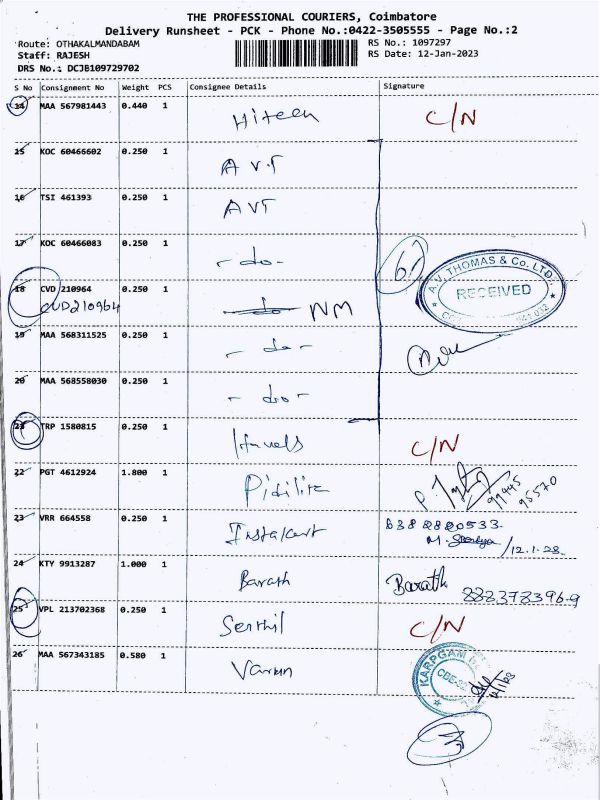 THE PROFESSIONAL COURIERS, Coimbatore
Delivery Runsheet - PCK - Phone No.:0422-3505555 - Page No.:2
Route: OTHAKALMANDABAM RS No.: 1097297
Staff: RAJESH RS Date: 12-Jan-2023
DRS No.: DCJB109729702
S No Consignment No Weight PCS Consignee Details Signature
14 MAA 567981443 0.440 1 Hiteen C/N
15 KOC 60466602 0.250 1 A V.T
16 TSI 461393 0.250 1 AVT
17 KOC 60466083 0.250 1 - do -
6
A.V. THOMAS & Co. LTD.
RECEIVED
18 CVD 210964 0.250 1 do NM
CVD210964
19 MAA 568311525 0.250 1 - do -
20 MAA 568558030 0.250 1 - do -
21 TRP 1580815 0.250 1 C/N
22 PGT 4612924 1.800 1 Pidilite
99445
95570
23 VRR 664558 0.250 1 Instakart
M. /12.1.23
24 KTY 9913287 1.000 1 Barath Barath
25 VPL 213702368 0.250 1 Senthil C/N
26 MAA 567343185 0.580 1 Varun
KARPGAM
12/1/23
3